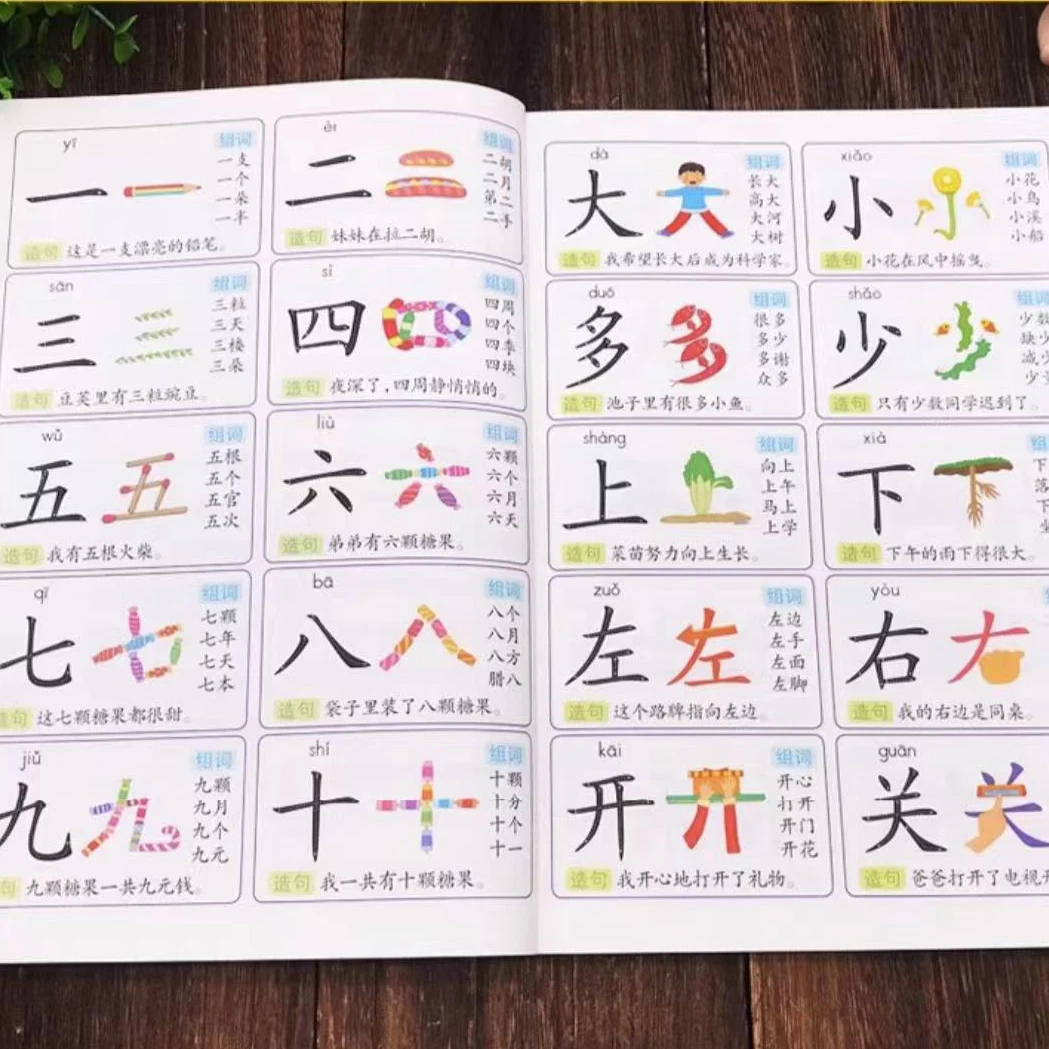 yī
一
组词
一支
一个
一朵
一半
造句 这是一支漂亮的铅笔。
èr
二
组词
二胡
二月
第二
二手
造句 妹妹在拉二胡。
sān
三
组词
三粒
三天
三楼
三朵
造句 豆荚里有三粒豌豆。
sì
四
组词
四周
四个
四季
四块
造句 夜深了，四周静悄悄的。
wǔ
五
组词
五根
五个
五官
五次
造句 我有五根火柴。
liù
六
组词
六颗
六个
六月
六天
造句 弟弟有六颗糖果。
qī
七
组词
七颗
七年
七天
七本
造句 这七颗糖果都很甜。
bā
八
组词
八个
八月
八方
腊八
造句 袋子里装了八颗糖果。
jiǔ
九
组词
九颗
九月
九个
九元
句 九颗糖果一共九元钱。
shí
十
组词
十颗
十分
十个
十一
造句 我一共有十颗糖果。
dà
大
组词
长大
高大
大河
大树
造句 我希望长大后成为科学家。
xiǎo
小
组词
小花
小鸟
小溪
小船
造句 小花在风中摇曳。
duō
多
组词
很多
多少
多谢
众多
造句 池子里有很多小鱼。
shǎo
少
组词
少数
缺少
减少
少
造句 只有少数同学迟到了。
shàng
上
组词
向上
上午
马上
上学
造句 菜苗努力向上生长。
xià
下
组
下
落
下
坐
造句 下午的雨下得很大。
zuǒ
左
组词
左边
左手
左面
左脚
造句 这个路牌指向左边。
yòu
右
造句 我的右边是同桌。
kāi
开
组词
开心
打开
开门
开花
造句 我开心地打开了礼物。
guān
关
造句 爸爸打开了电视开